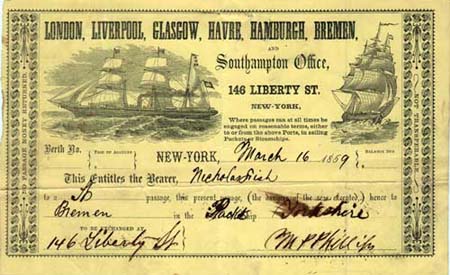 LONDON, LIVERPOOL, GLASGOW, HAVRE, HAMBURGH, BREMEN,
AND
Southampton Office,
146 LIBERTY ST.
NEW-YORK,
Where passages can at all times be
engaged on reasonable terms, either
to or from the above Ports, in sailing
Packets or Steamships.
NO PASSAGE MONEY RETURNED.
NOT TRANSFERABLE.
Berth No.
NEW-YORK, March 16 1859
BALANCE DUE
This Entitles the Bearer, Nicholas Fish
to a St passage, this present voyage, (the dangers of the sea excepted) hence to
Bremen in the Packet ship Yorkshire
TO BE EXCHANGED AT
146 Liberty St
M P Phillips